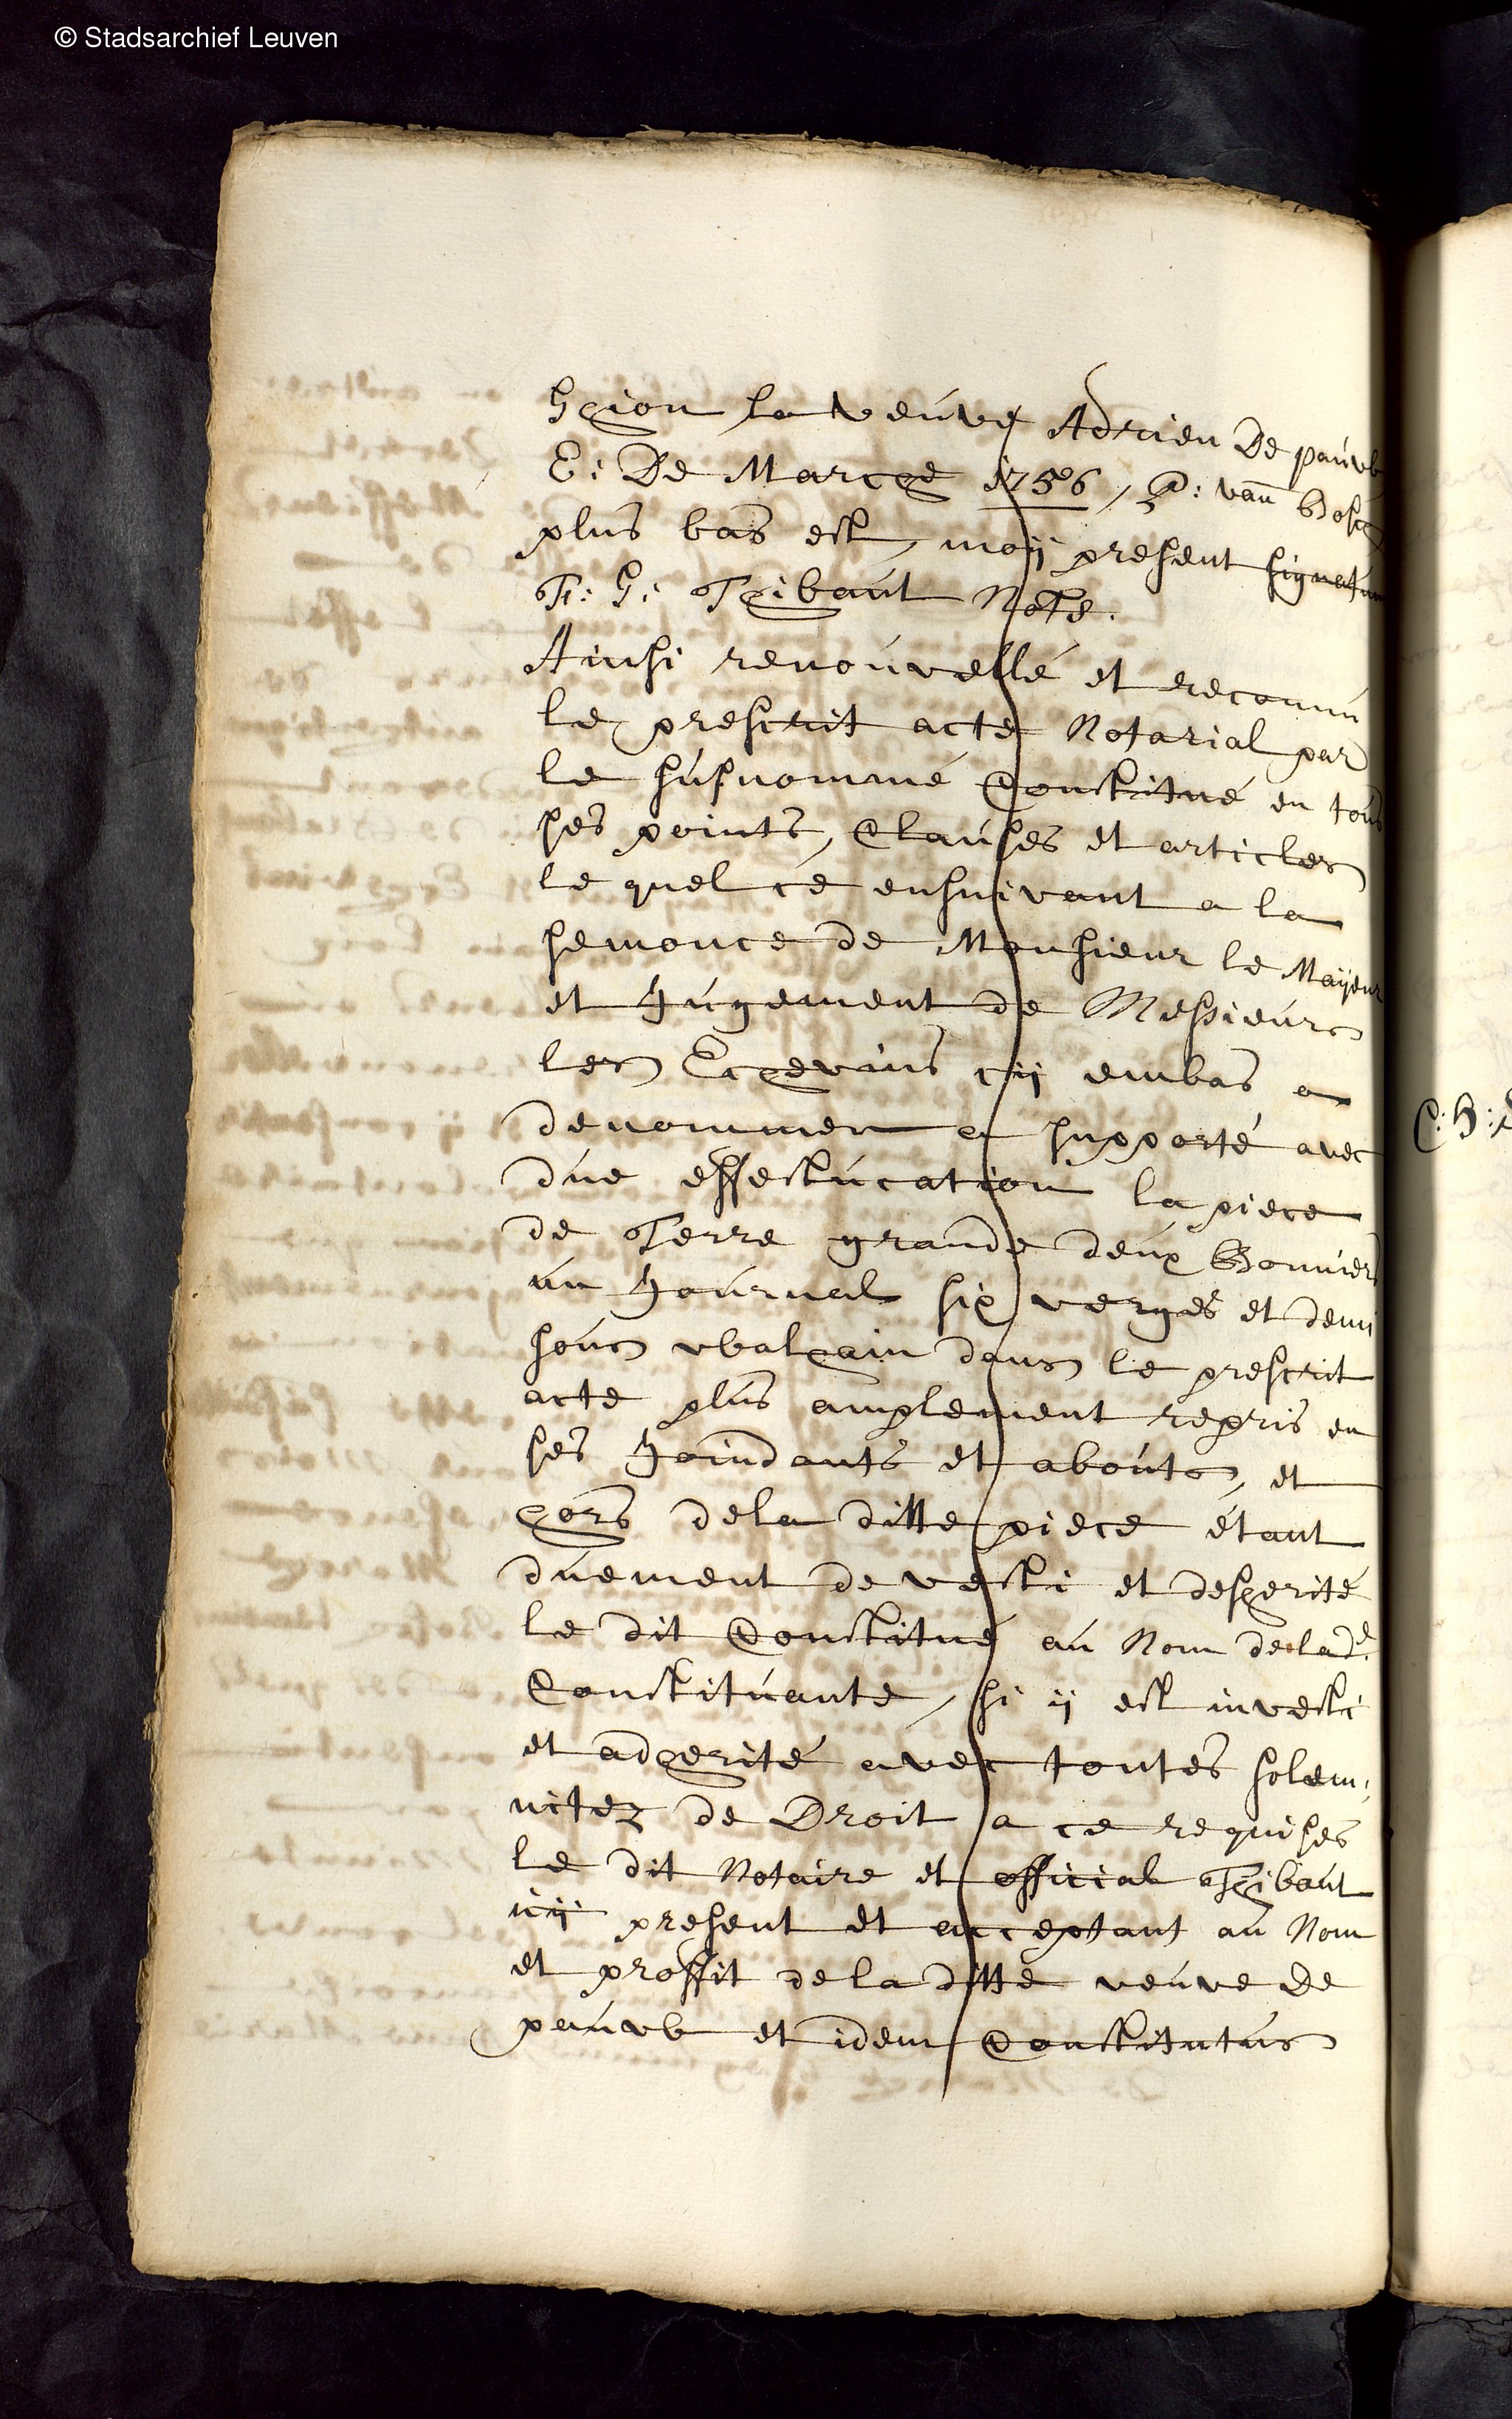 © Stadsarchief Leuven
la veuve Adrien De pauvb
E: De Marche 1756, van
plus bas est, moÿ present signatum
G: Thibaut Note.
Ainsi renouvellé et reconnu
le prescrit acte Notarial par
le susnommé Constitué en tous
ses points, Clauses et articles
le quel ce ensuivant a la
semonce de Monsieur le Maÿeur
et Jugement de Messieurs
les Echevins cÿ embas a
denommer a supporté avec
due effestucation la piece
de Terre grande deux Bonniers
un Journal six verges et demi
sous ubalhain dans le prescrit
acte plus amplement repris en
ses Joindants et abouts, et
hors dela ditte piece étant
duement devesti et desherité
le dit Constitué au Nom delade.
Constituante, si ÿ est investi
et adherité avec toutes solem,
nitez de Droit a ce requises
le dit Notaire et official Thibaut
icÿ present et acceptant au Nom
et proffit dela ditte veuve De
pauvb et idem Constitutus
C: H: